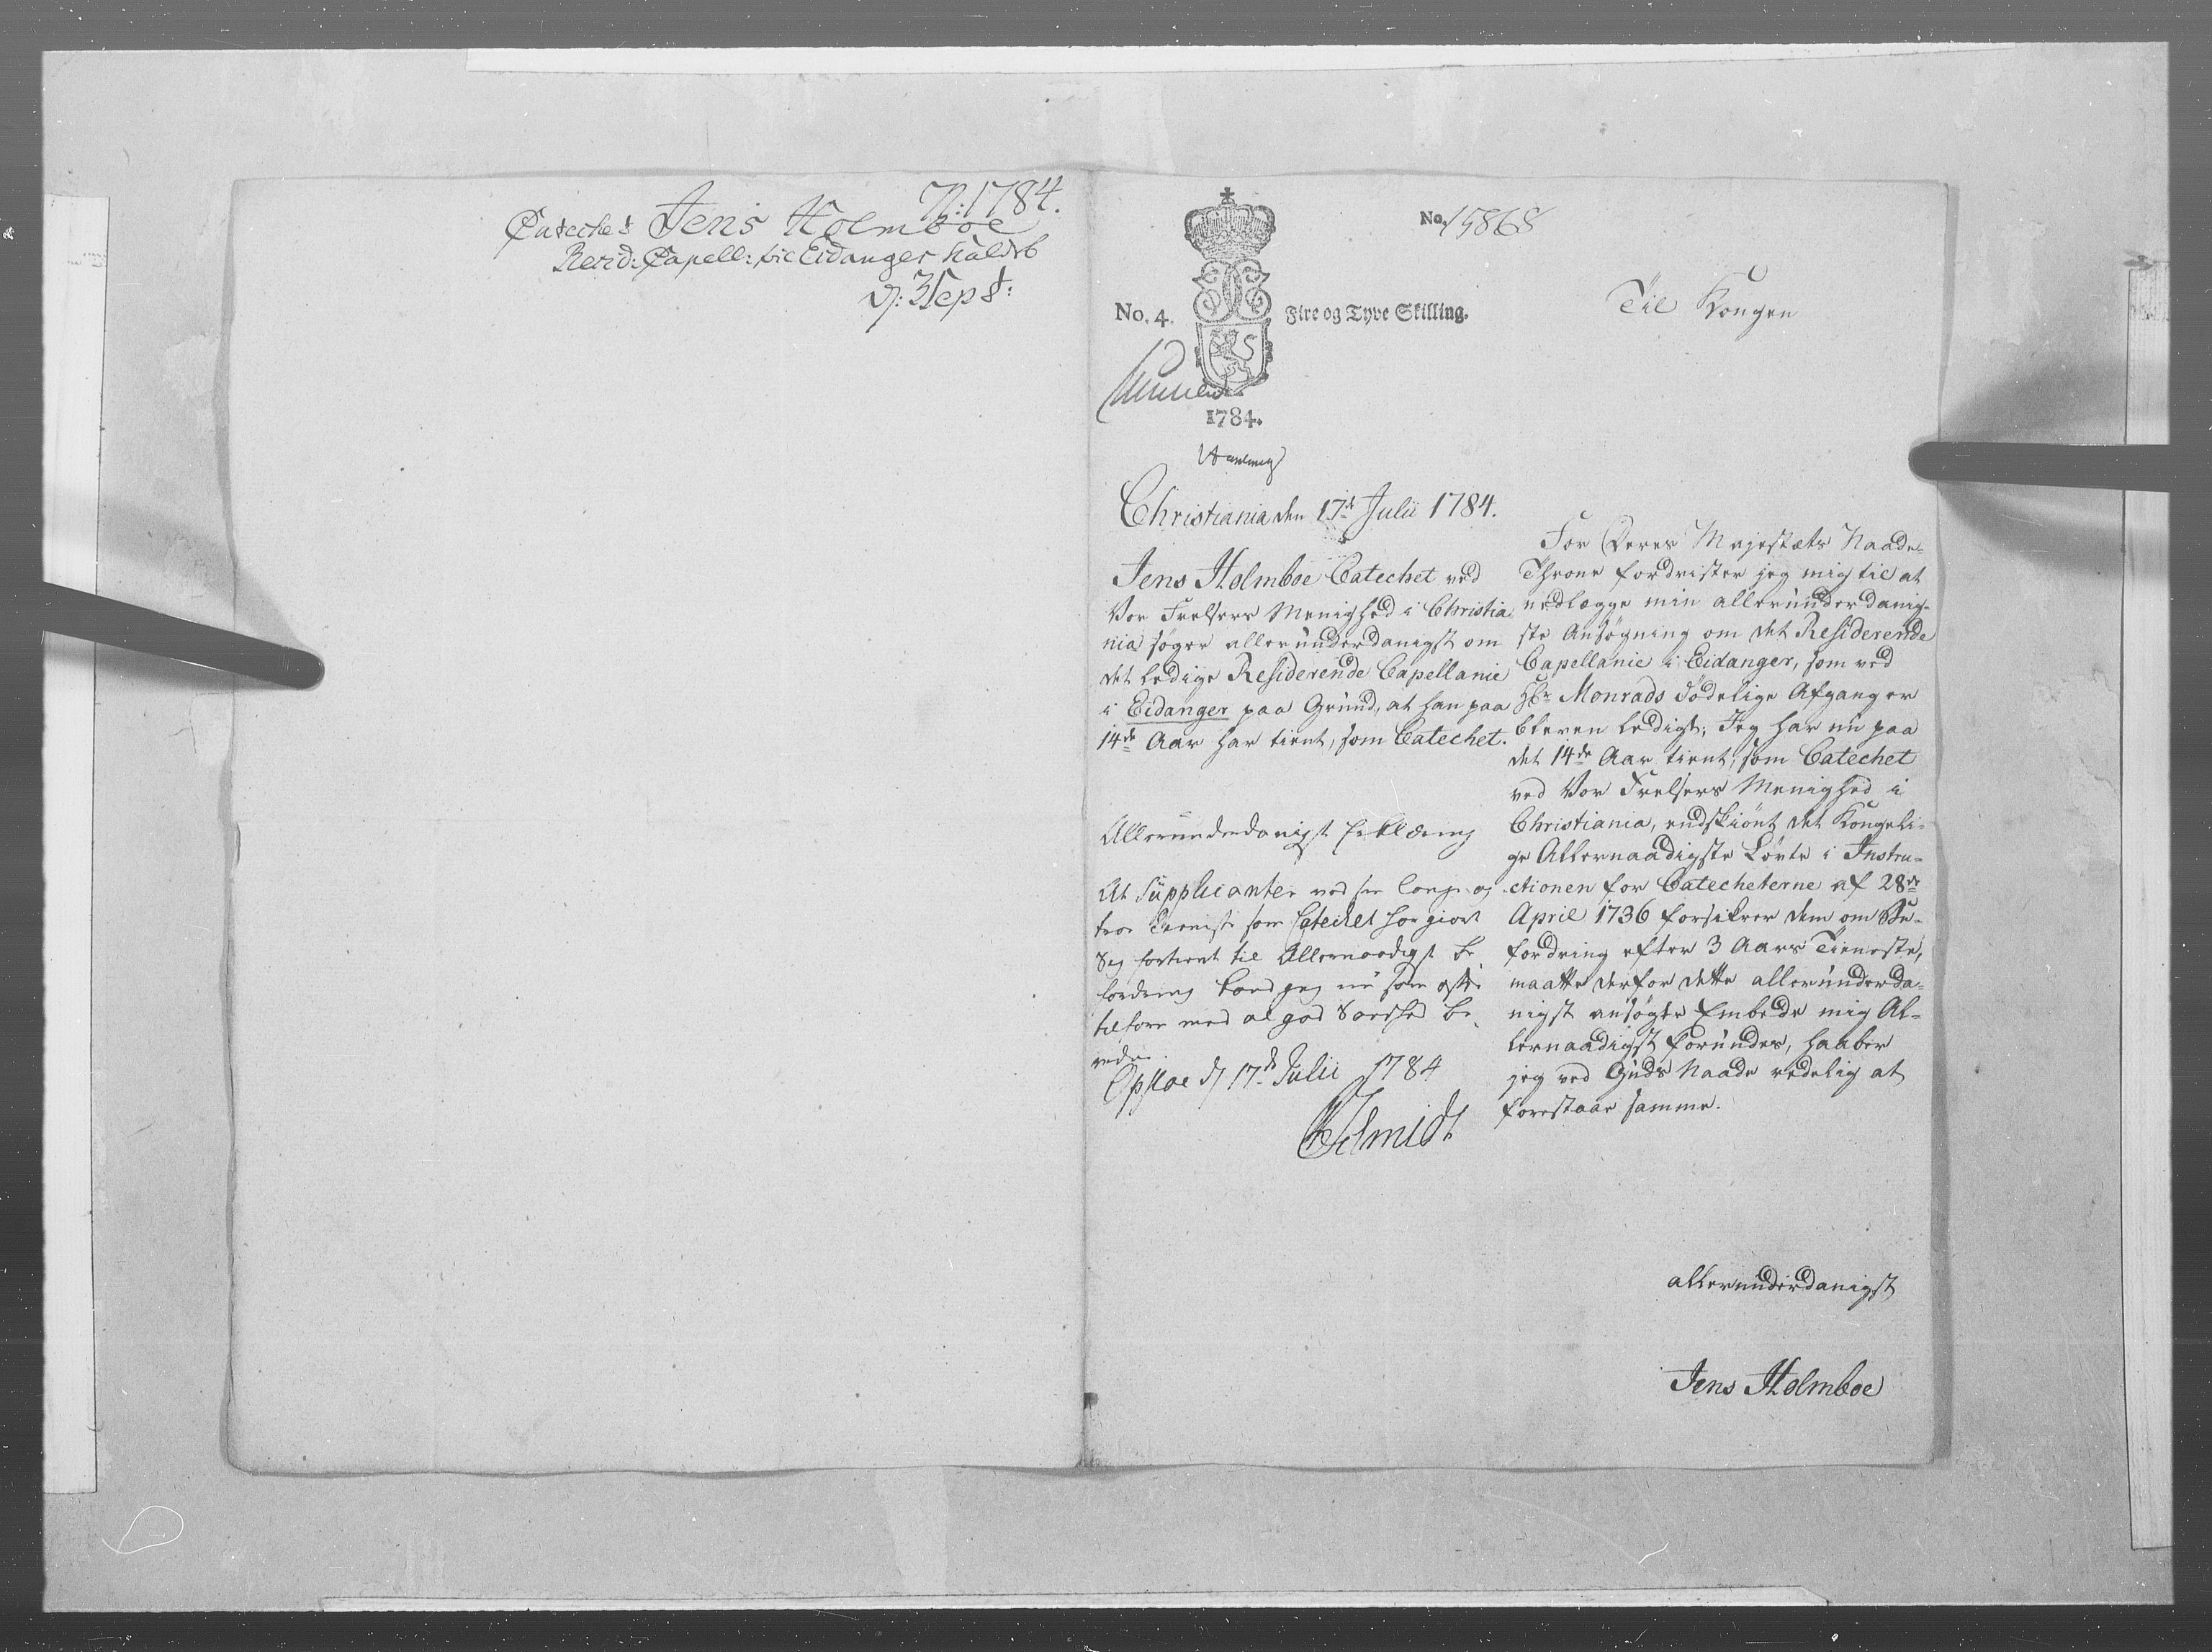 N: 1784.
Catechet Jens Holmboe
Resid: Capell: til Eidanger kaldet
d: 3 Sept:
No. 15868
No. 4.
Fire og Tyve Skilling.
1784.
Til Kongen
Christiania den 17de Julii 1784.
Jens Holmboe Catechet ved
Vor Frelsers Menighed i Christia
nia søger allerunderdanigst om
det ledige Residerende Capellanie
i Eidanger paa Grund, at han paa
14de Aar har tient, som Catechet.
Allerunderdanigst Erklæring
At Supplicanten ved sin lange og
troe Tieniste som Catechet har giort
Sig fortient til Allernaadigst be
fordring kand jeg nu som ofte
tilforn med al god Sandhed be
vidne.
Opsloe d 17de Julii 1784
Schmidt
For Deres Majestæts Naade-
Throne fordrister jeg mig til at
nedlægge min allerunderdanig-
ste Ansøgning om det Residerende
Capellanie i Eidanger, som ved
Hr. Monrads dødelige Afgang er
bleven ledigt; Jeg har nu paa
det 14de Aar tient, som Catechet
ved Vor Frelsers Menighed i
Christiania, endskiønt det Kongeli-
ge Allernaadigste Løvte i Instru-
ctionen for Catecheterne af 28de
April 1736 forsikrer dem om Be-
fordring efter 3 Aars Tieneste,
maatte derfor dette allerunderda-
nigst ansøgte Embede mig Al-
lernaadigst forundes, haaber
jeg ved Guds Naade redelig at
forestaae samme.
allerunderdanigst
Jens Holmboe